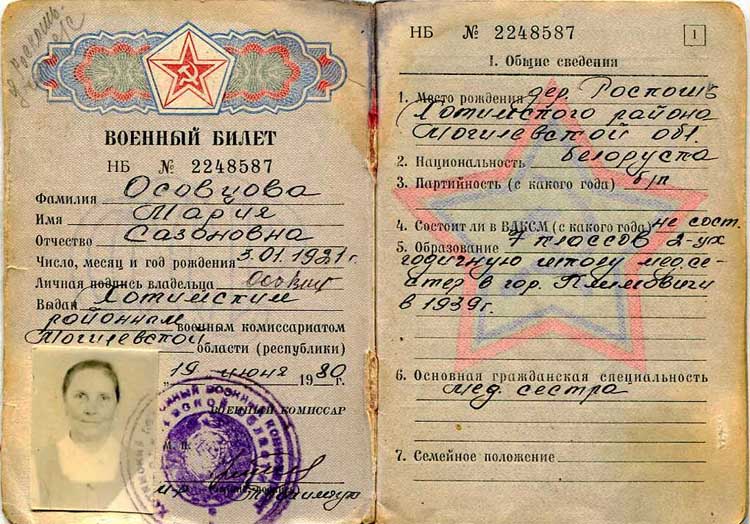 ВОЕННЫЙ БИЛЕТ
НБ № 2248587
Фамилия Осовцова
Имя Мария
Отчество Сазоновна
Число, месяц и год рождения 3.01.1921 г.
Личная подпись владельца
Выдан Хотимским
районным военным комиссариатом
Могилевской области (республики)
„19 июня 1980 г.
ВОЕННЫЙ КОМИССАР
М. п.
НБ № 2248587
1
I. Общие сведения
1. Место рождения дер. Роскошь
Хотимского района
Могилевской обл.
2. Национальность белоруска
3. Партийность (с какого года) б/п
4. Состоит ли в ВЛКСМ (с какого года) не сост.
5. Образование 7 классов 2-ух
годичную школу медсе-
стер в гор. Климовичи
в 1939 г.
6. Основная гражданская специальность
мед. сестра
7. Семейное положение